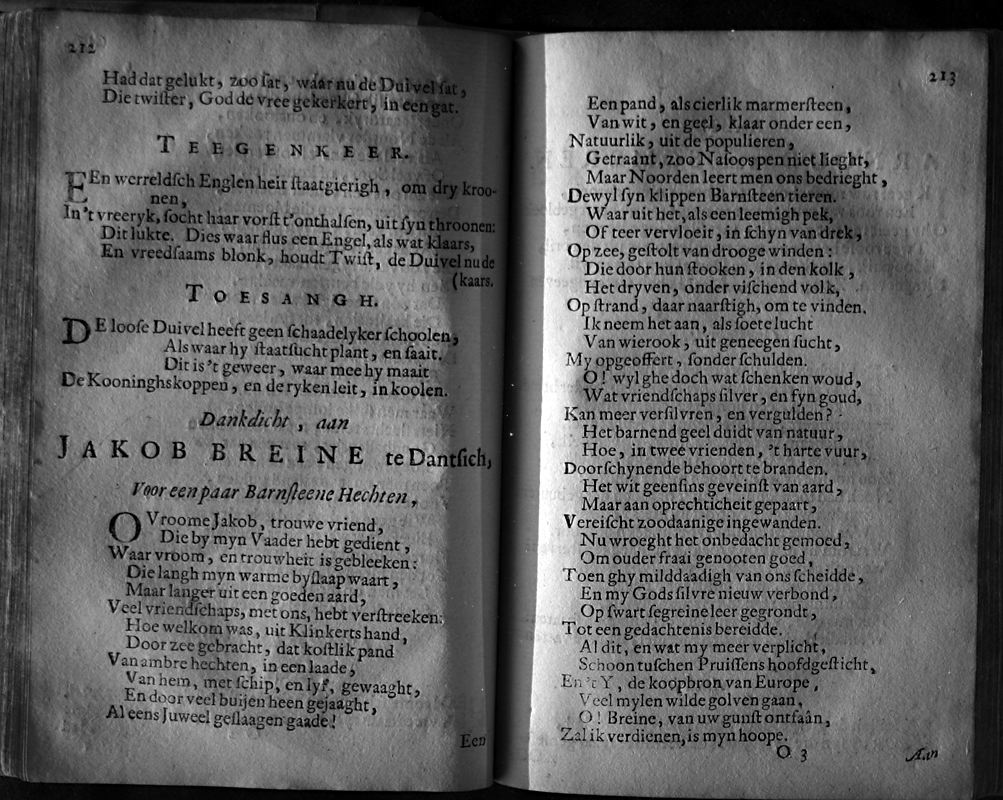 212
Had dat gelukt, zoo sat, waar nu de Duivel sat,
Die twister, God de vree gekerkert, in een gat.
TEEGENKEER.
EEn werreldsch Englen heir staatgierigh, om dry kroo-
nen,
In 't vreeryk, socht haar vorst t'onthalsen, uit syn throonen:
Dit lukte. Dies waar flus een Engel, als wat klaars,
En vreedsaams blonk, houdt Twist, de Duivel nu de
(kaars.
TOESANGH.
DE loose Duivel heeft geen schaadelyker schoolen,
Als waar hy staatsucht plant, en saait.
Dit is 't geweer, waar mee hy maait
De Kooninghskoppen, en de ryken leit, in koolen.
Dankdicht, aan
JAKOB BREINE te Dantsich,
Voor een paar Barnsteene Hechten,
O Vroome Jakob, trouwe vriend,
Die by myn Vaader hebt gedient,
Waar vroom, en trouwheit is gebleeken:
Die langh myn warme byslaap waart,
Maar langer uit een goeden aard,
Veel vriendschaps, met ons, hebt verstreeken:
Hoe welkom was, uit Klinkerts hand,
Door zee gebracht, dat kostlik pand
Van ambre hechten, in een laade,
Van hem, met schip, en lyf, gewaaght,
En door veel buijen heen gejaaght,
Al eens Juweel geslaagen gaade!
Een
213
Een pand, als cierlik marmersteen,
Van wit, en geel, klaar onder een,
Natuurlik, uit de populieren,
Getraant, zoo Nasoos pen niet lieght,
Maar Noorden leert men ons bedrieght,
Dewyl syn klippen Barnsteen tieren.
Waar uit het, als een leemigh pek,
Of teer vervloeit, in schyn van drek,
Op zee, gestolt van drooge winden:
Die door hun stooken, in den kolk,
Het dryven, onder vischend volk,
Op strand, daar naarstigh, om te vinden.
Ik neem het aan, als soete lucht
Van wierook, uit geneegen sucht,
My opgeoffert, sonder schulden.
O! wyl ghe doch wat schenken woud,
Wat vriendschaps silver, en fyn goud,
Kan meer versilvren, en vergulden?
Het barnend geel duidt van natuur,
Hoe, in twee vrienden, 't harte vuur,
Doorschynende behoort te branden.
Het wit geensins geveinst van aard,
Maar aan oprechticheit gepaart,
Vereischt zoodaanige ingewanden.
Nu wroeght het onbedacht gemoed,
Om ouder fraai genooten goed,
Toen ghy milddaadigh van ons scheidde,
En my Gods silvre nieuw verbond,
Op swart segreine leer gegrondt,
Tot een gedachtenis bereidde.
Al dit, en wat my meer verplicht,
Schoon tuschen Pruissens hoofdgesticht,
En 't Y, de koopbron van Europe,
Veel mylen wilde golven gaan,
O! Breine, van uw gunst ontfaân,
Zal ik verdienen, is myn hoope.
O 3
Aan